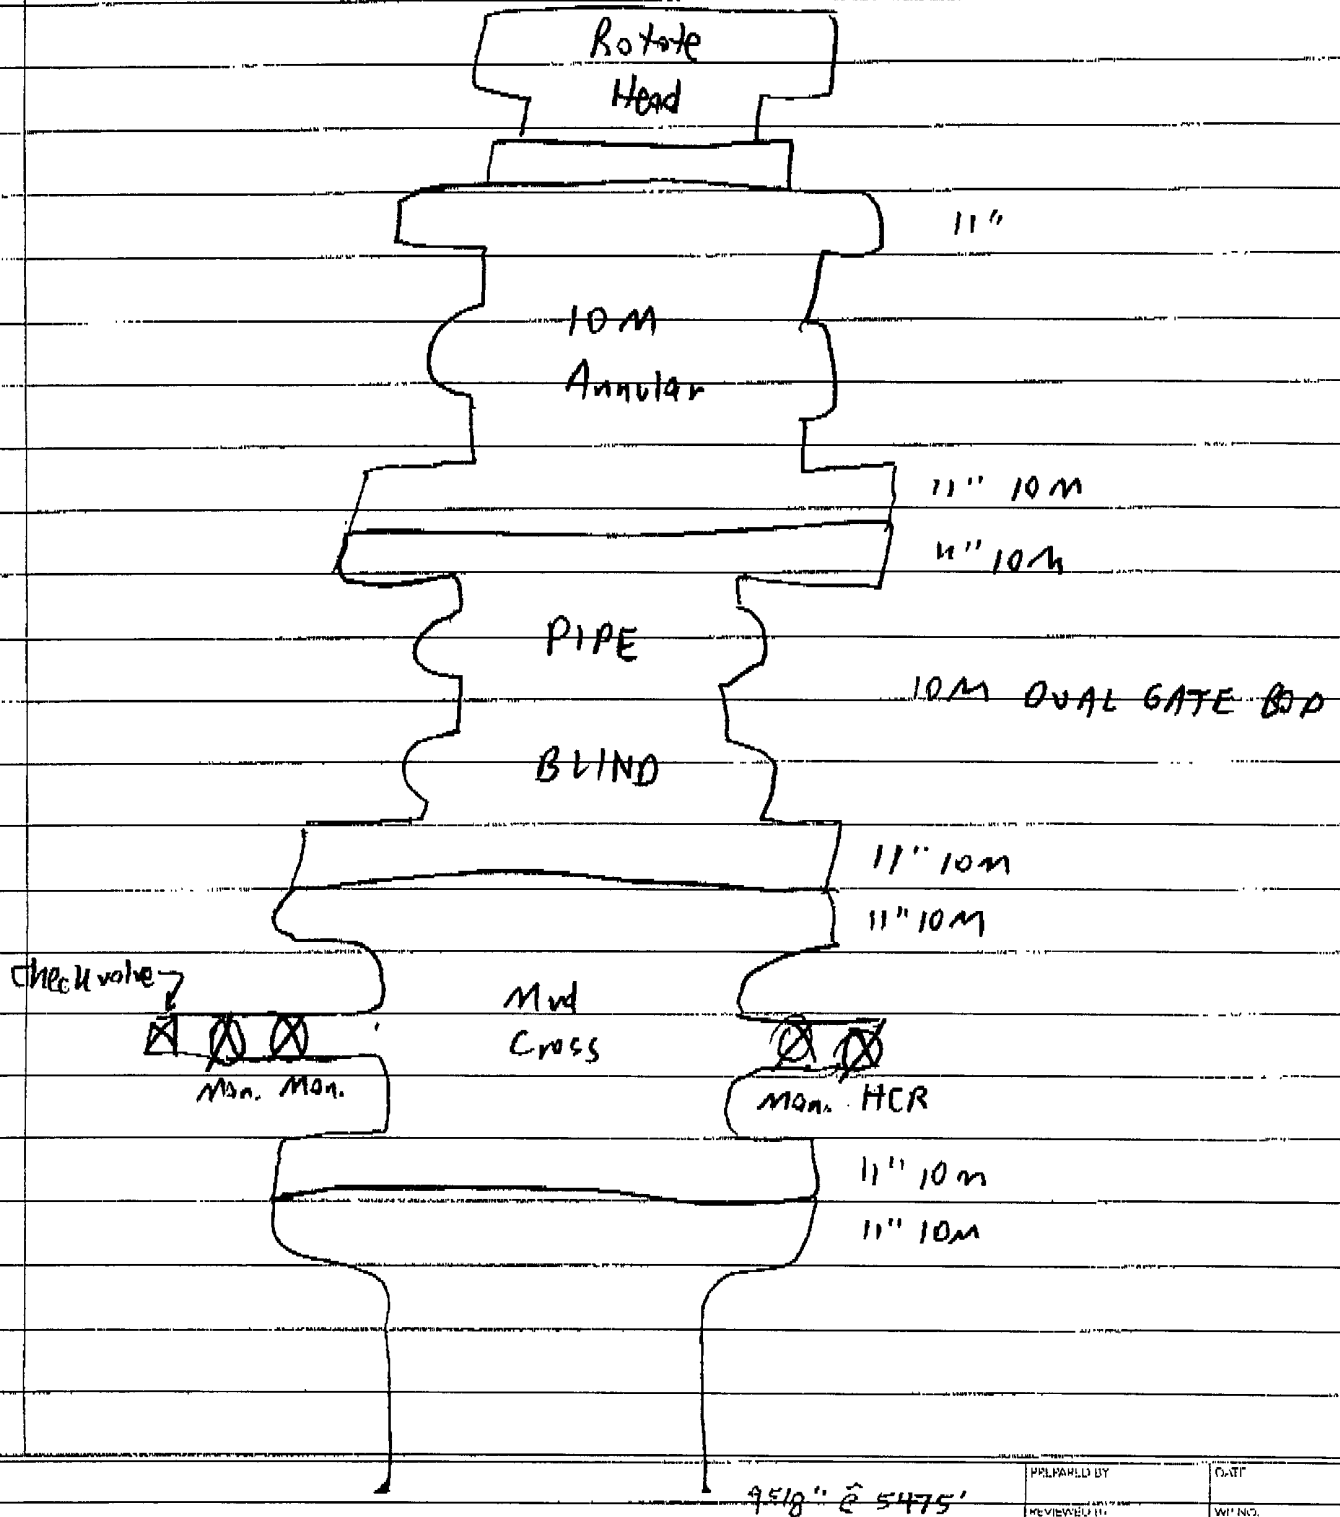 Rotate
Head
11"
10 M
Annular
11" 10M
11" 10M
PIPE
10M DUAL GATE BOP
BLIND
11" 10M
11" 10M
Check valve
Mud
Cross
Man. Man.
Man. HCR
11" 10M
11" 10M
9 5/8" @ 5475'
PREPARED BY
DATE
REVIEWED BY
WP NO.